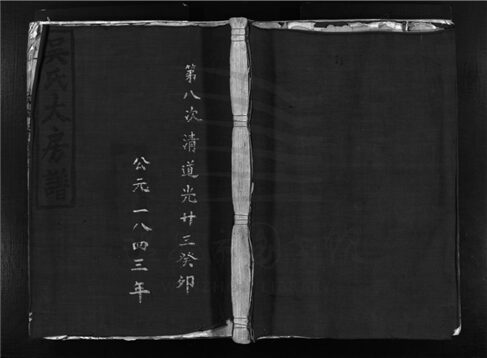 吴氏大房譜
第八次清道光廿三癸卯
公元一八四三年